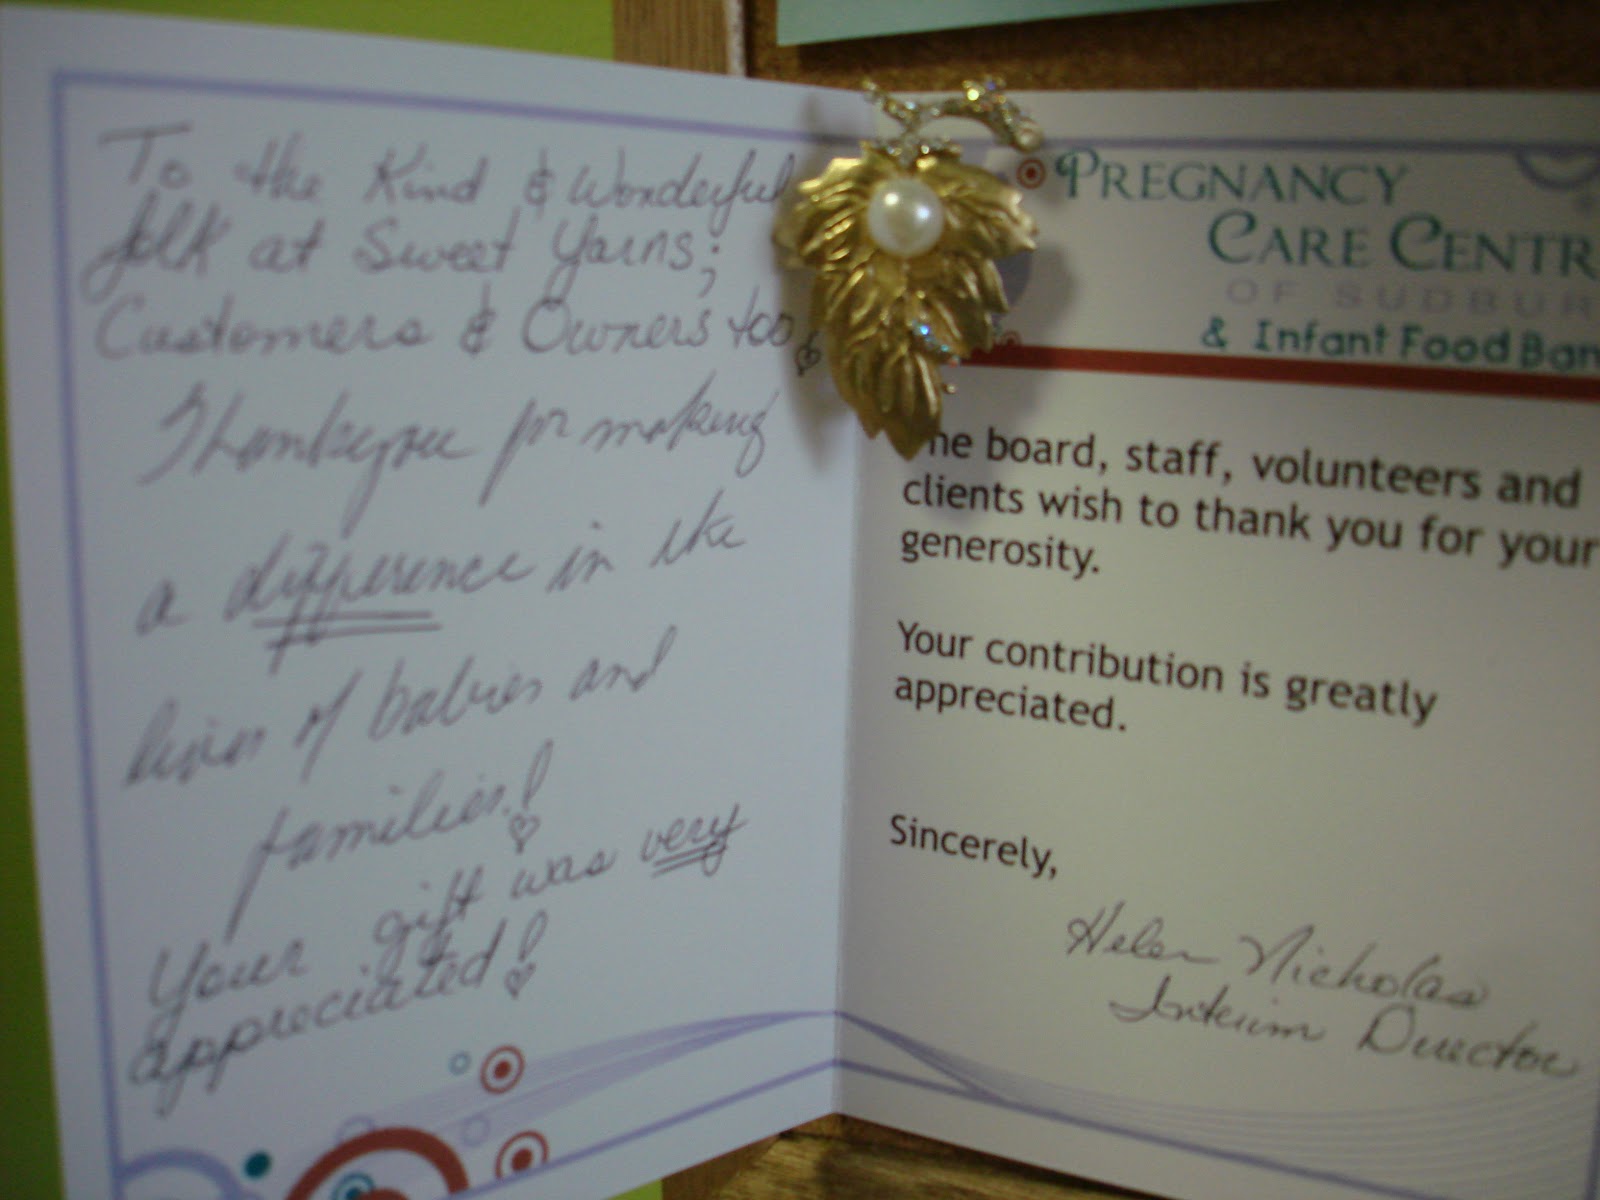 To the Kind & Wonderful
folk at Sweet Yarns;
Customers & Owners too!
Thankyou for making
a difference in the
lives of babies and
families!
Your gift was very
appreciated!
PREGNANCY
CARE CENTR
OF SUDBUR
& Infant Food Ban
he board, staff, volunteers and
clients wish to thank you for your
generosity.
Your contribution is greatly
appreciated.
Sincerely,
Helen Nicholas
Interim Director